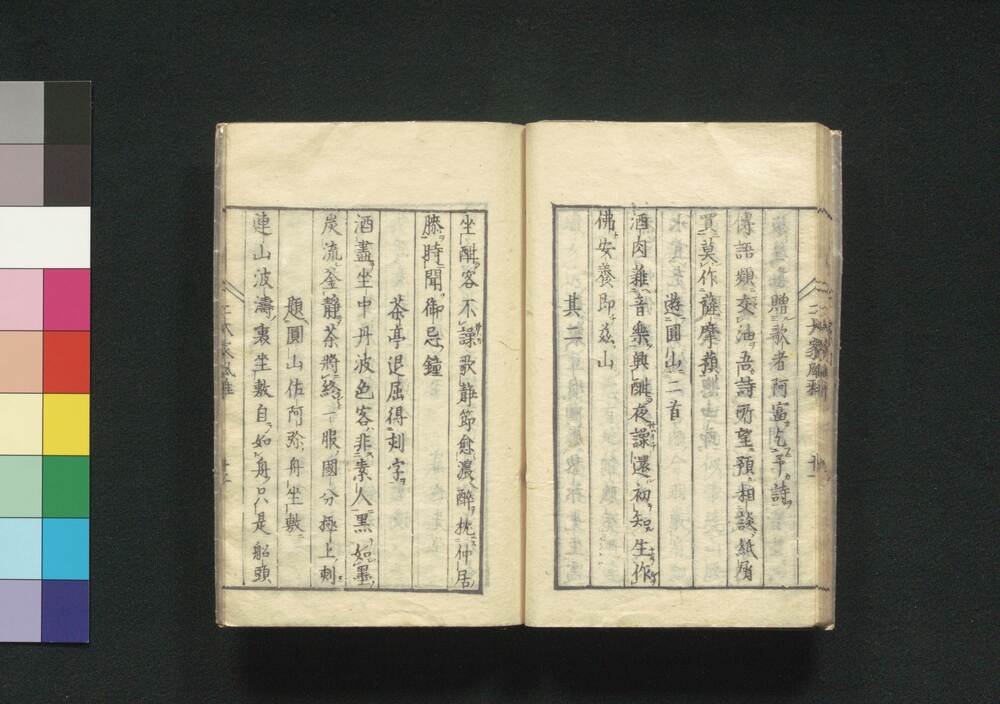 贈歌者阿富乞予詩
傳語頻交油吾詩所望預相談紙屑
買莫作薩摩蕷
遊圓山二首
酒肉雜音樂與酣夜譟還初知生作
佛安養即茲山
其二
坐酣客不譟歌静節愈濃醉枕仲居
膝時聞御忌鐘
茶亭退屈得刻字
酒盡坐中丹波色客非素人黒如墨
炭流釜静茶將終一服國分極上刻
題圓山佐阿弥舟坐敷
連山波濤裏坐敷自如舟只是船頭